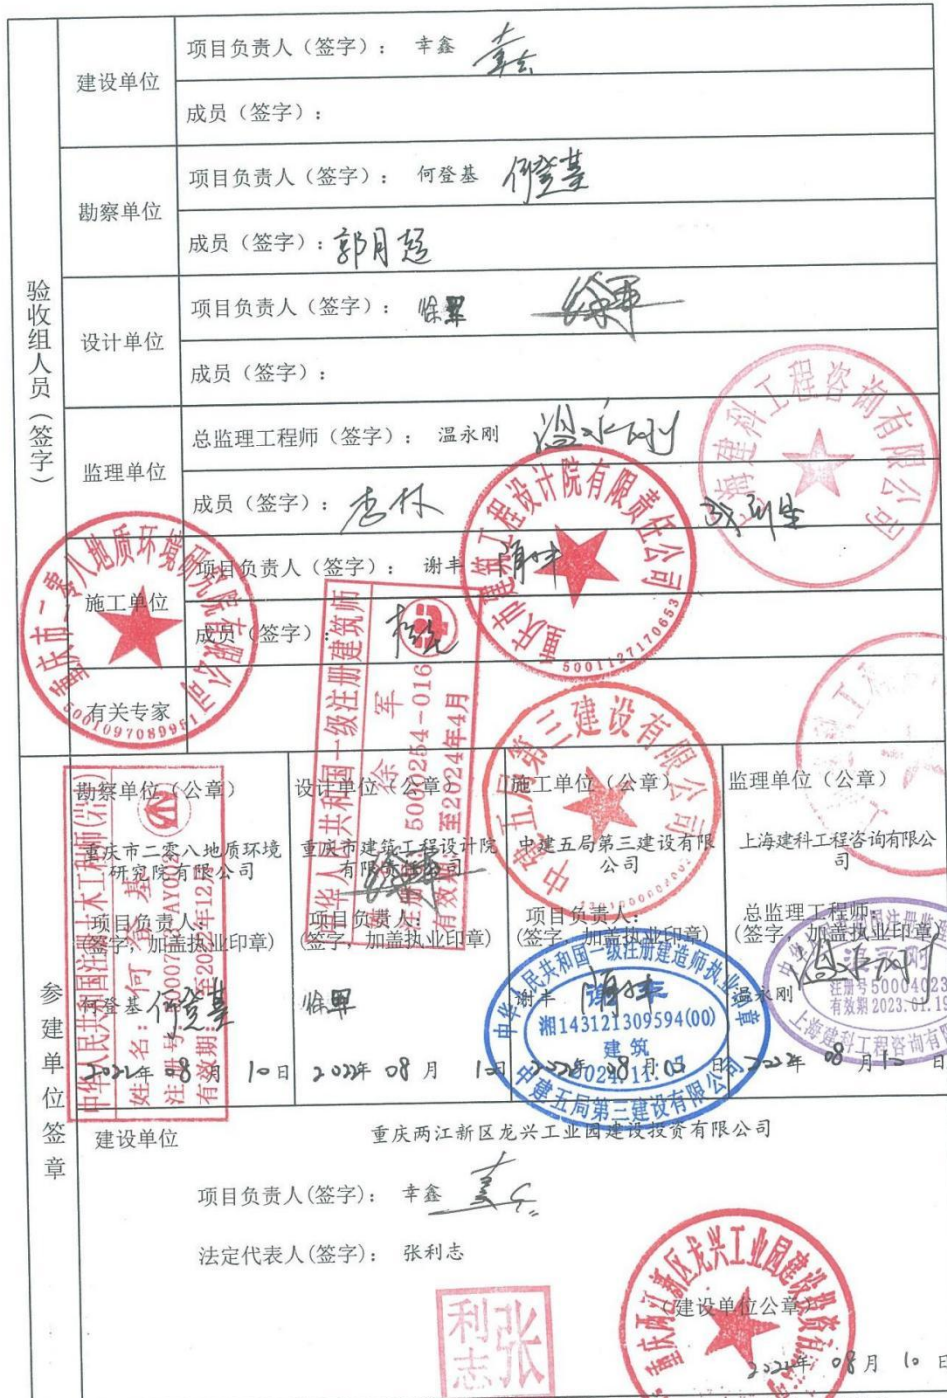 验收组人员（签字）
建设单位
项目负责人（签字）： 幸鑫
成员（签字）：
勘察单位
项目负责人（签字）： 何登基 何登基
成员（签字）：郭月超
设计单位
项目负责人（签字）： 徐军
成员（签字）：
监理单位
总监理工程师（签字）： 温永刚 温永刚
成员（签字）：李林
施工单位
项目负责人（签字）： 谢丰
成员（签字）：
有关专家
重庆市二零八地质环境研究院有限公司
5001097089961
重庆市建筑工程设计院有限责任公司
5001127170653
上海建科工程咨询有限公司
中建五局第三建设有限公司
中华人民共和国一级注册建筑师
姓名：徐军
注册号：5000254-016
有效期：至2024年4月
参建单位签章
勘察单位（公章）
重庆市二零八地质环境
研究院有限公司
项目负责人：
(签字，加盖执业印章)
何登基 何登基
2022年 08月 10日
中华人民共和国注册土木工程师(岩土)
姓名：何登基
设计单位（公章）
重庆市建筑工程设计院
有限责任公司
项目负责人：
(签字，加盖执业印章)
2022年 08月 10日
施工单位（公章）
中建五局第三建设有限
公司
项目负责人：
(签字，加盖执业印章)
谢丰
2022年 08月 日
中华人民共和国一级注册建造师执业印章
谢丰
湘143121309594(00)
建筑
2024.11.07
中建五局第三建设有限公司
监理单位（公章）
上海建科工程咨询有限公
司
总监理工程师：
(签字，加盖执业印章)
温永刚 温永刚
2022年 08月 10日
注册号50004023
有效期2023.01.19
上海建科工程咨询有限
建设单位
重庆两江新区龙兴工业园建设投资有限公司
项目负责人(签字)： 幸鑫
法定代表人(签字)： 张利志
张利志
（建设单位公章）
重庆两江新区龙兴工业园建设投资有限公司
2022年 08月 10日